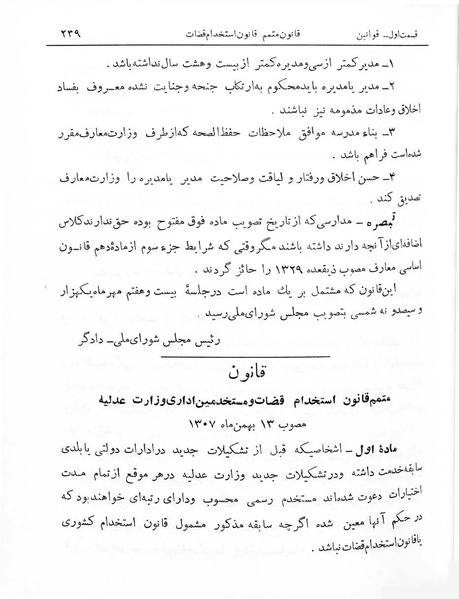 قسمت اول - قوانین قانون متمم قانون استخدام قضات ۲۳۹
۱- مدیر کمتر از سی و مدیره کمتر از بیست و هشت سال نداشته باشد .
۲- مدیر یا مدیره باید محکوم به ارتکاب جنحه و جنایت نشده معروف بفساد
اخلاق و عادات مذمومه نیز نباشند .
۳- بناء مدرسه موافق ملاحظات حفظ الصحه که از طرف وزارت معارف مقرر
شده است فراهم باشد .
۴- حسن اخلاق و رفتار و لیاقت و صلاحیت مدیر یا مدیره را وزارت معارف
تصدیق کند .
تبصره - مدارسی که از تاریخ تصویب ماده فوق مفتوح بوده حق ندارند کلاس
اضافه‌ای از آنچه دارند داشته باشند مگر وقتی که شرایط جزء سوم از ماده دهم قانون
اساسی معارف مصوب ذیقعده ۱۳۲۹ را حائز گردند .
این قانون که مشتمل بر یك ماده است در جلسهٔ بیست و هفتم مهر ماه یکهزار
و سیصد و نه شمسی بتصویب مجلس شورای ملی رسید .
رئیس مجلس شورای ملی - دادگر
قانون
متمم قانون استخدام قضات و مستخدمین اداری وزارت عدلیه
مصوب ۱۳ بهمن ماه ۱۳۰۷
مادهٔ اول - اشخاصیکه قبل از تشکیلات جدید در ادارات دولتی یا بلدی
سابقه خدمت داشته و در تشکیلات جدید وزارت عدلیه در هر موقع از تمام مدت
اختیارات دعوت شده‌اند مستخدم رسمی محسوب و دارای رتبه‌ای خواهند بود که
در حکم آنها معین شده اگرچه سابقه مذکور مشمول قانون استخدام کشوری
یا قانون استخدام قضات نباشد .